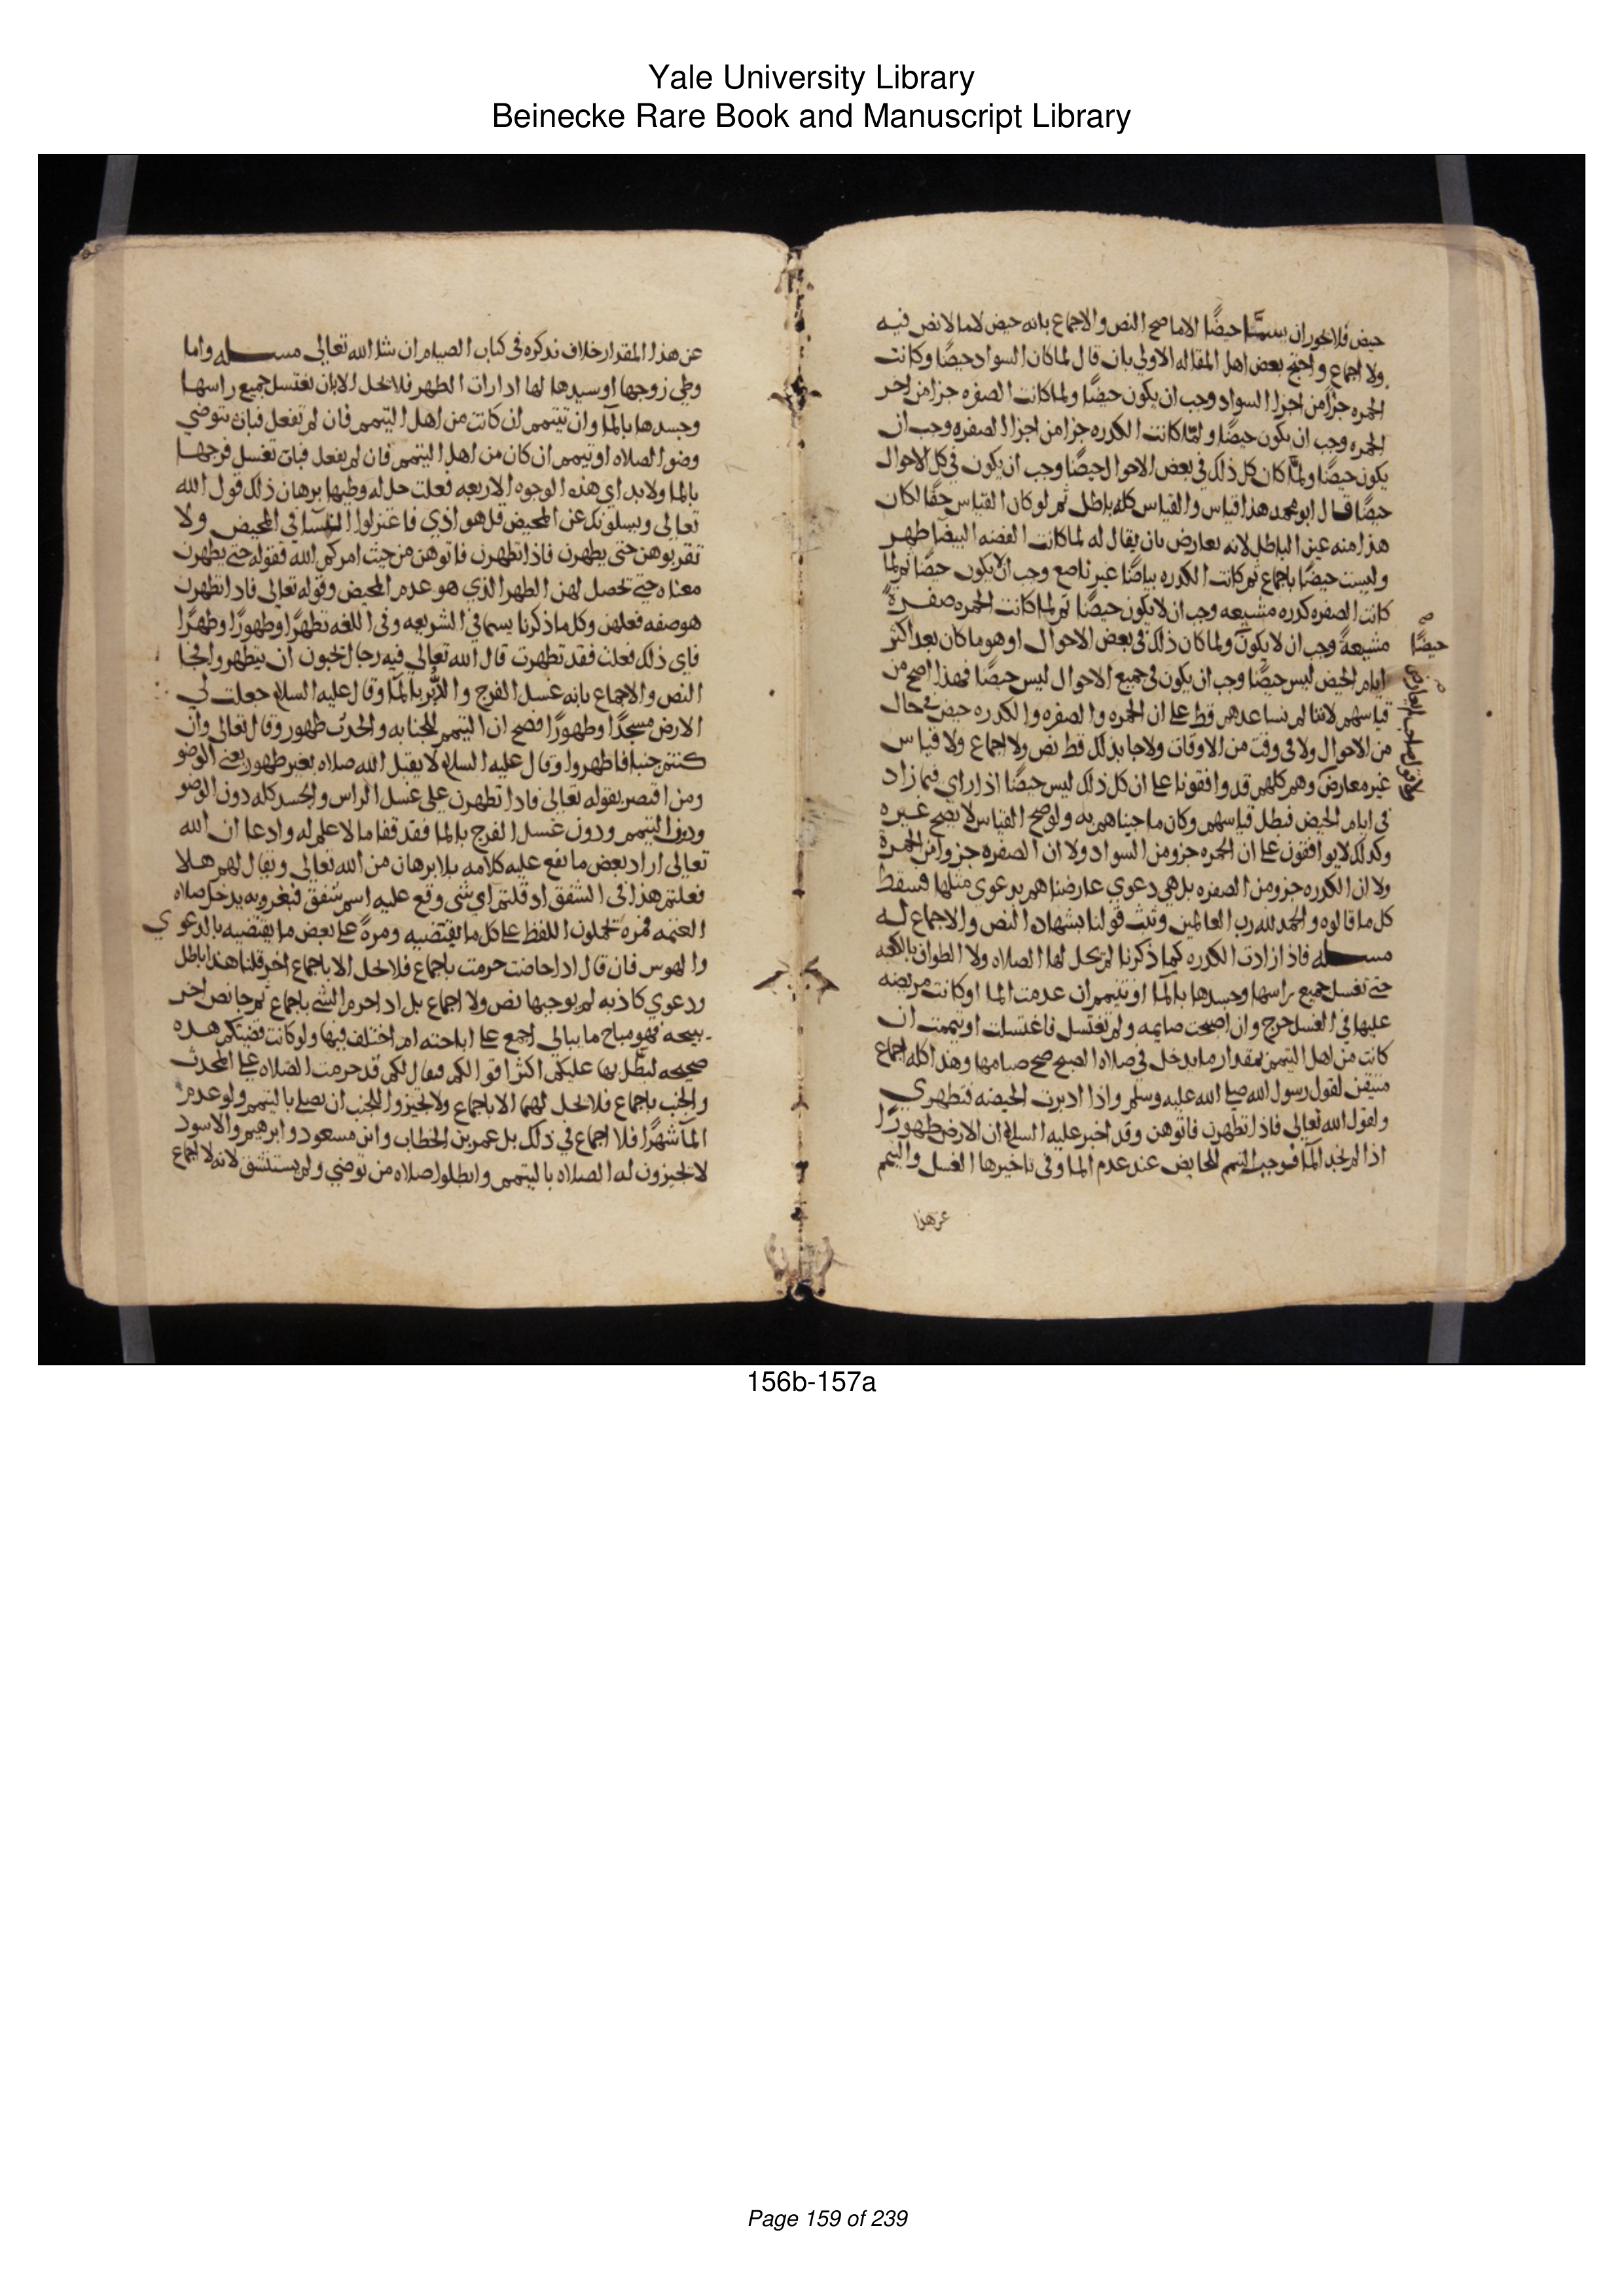 Yale University Library
Beinecke Rare Book and Manuscript Library
حيض فلا يجوز ان يسمى حيضًا الا ما صح النص والاجماع بانه حيض لا ما لا نص فيه
ولا اجماع واحتج بعض اهل المقاله الاولي بان قال لما كان السواد حيضًا وكانت
الحمره جزا من اجزا السواد وجب ان يكون حيضًا ولما كانت الصفره جزا من اجزا
الحمره وجب ان يكون حيضًا ولما كانت الكدره جزا من اجزا الصفره وجب ان
يكون حيضًا ولما كان كل ذلك في بعض الاحوال حيضًا وجب ان يكون في كل الاحوال
حيضًا قال ابو محمد هذا قياس والقياس كله باطل ثم لو كان القياس حقًا لكان
هذا منه عين الباطل لانه يعارض بان يقال له لما كانت القصه البيضا طهر
وليست حيضًا باجماع ثم كانت الكدره بياضًا غير ناصع وجب الا يكون حيضًا ثم لما
كانت الصفره كدره مشبعه وجب ان لا يكون حيضًا ثم لما كانت الحمره صفرة
مشبعةً وجب ان لا يكون ولما كان ذلك في بعض الاحوال وهو ما كان بعد اكثر
حيضًا
ايام الحيض ليس حيضًا وجب ان يكون في جميع الاحوال ليس حيضًا فهذا اصح من
قياسهم لاننا لم نساعدهم قط على ان الحمره والصفره والكدره حيض في حال
من الاحوال ولا في وقت من الاوقات ولا جا بذلك قط نص ولا اجماع ولا قياس
غير معارض وهم كلهم قد وافقونا على ان كل ذلك ليس حيضًا اذا راي فيما زاد
في ايام الحيض فبطل قياسهم وكان ما جيناهم به ولو صح القياس لا يصح غيره
وكذلك لا يوافقون على ان الحمره جزو من السواد ولا ان الصفره جزو من الحمرة
ولا ان الكدره جزو من الصفره بل هي دعوي عارضناهم بدعوي مثلها فسقط
كل ما قالوه والحمد لله رب العالمين وثبت قولنا بشهادة النص والاجماع له
مسله فاذا زادت الكدره كما ذكرنا لم يحل لها الصلاه ولا الطواف بالكعبه
حتى تغسل جميع راسها وجسدها بالمآ او تتيمم ان عدمت الما او كانت مريضه
عليها في الغسل حرج وان اصبحت صايمه ولم تغتسل فاغتسلت او تيممت ان
كانت من اهل التيمم بمقدار ما يدخل في صلاه الصبح صح صيامها وهذا كله اجماع
متيقن لقول رسول الله صلى الله عليه وسلم واذا ادبرت الحيضه فتطهري
ولقول الله تعالى فاذا تطهرن فاتوهن وقد اخبر عليه السلم ان الارض طهورًا
اذا لم نجد المآ فوجب التيمم للحايض عند عدم الما وفي تاخيرها الغسل والتيمم
عن هذا
عن هذا المقدار خلاف نذكره في كتاب الصيام ان شا الله تعالى مسله واما
وطي زوجها او سيدها لها اذا رات الطهر فلا يحل الا بان تغتسل جميع راسها
وجسدها بالمآ وان تتيمم ان كانت من اهل التيمم فان لم تفعل فبان تتوضي
وضوا لصلاه او تيمم ان كان من اهل التيمم فان لم تفعل فبان تغسل فرجها
بالما ولا بد اي هذه الوجوه الاربعه فعلت حل له وطيها برهان ذلك قول الله
تعالى ويسلونك عن المحيض قل هو اذي فاعتزلوا النسا في المحيض ولا
تقربوهن حتى يطهرن فاذا تطهرن فاتوهن من حيث امركم الله فقوله حتى يطهرن
معناه حتى يحصل لهن الطهر الذي هو عدم المحيض وقوله تعالى فاذا تطهرن
هو صفه فعلهن وكل ما ذكرنا يسما في الشريعه وفي اللغه تطهرًا وطهورًا وطهرًا
فاي ذلك فعلت فقد تطهرت قال الله تعالى فيه رجال يحبون ان يتطهروا فجا
النص والاجماع بانه غسل الفرج والدبر بالمآ وقال عليه السلم جعلت لي
الارض مسجدًا وطهورًا فصح ان التيمم للجنابه والحدث طهور وقال تعالى وان
كنتم جنبا فاطهروا وقال عليه السلم لا يقبل الله صلاه بغير طهور يعني الوضو
ومن اقتصر بقوله تعالى فاذا تطهرن على غسل الراس والجسد كله دون الوضو
ودون التيمم ودون غسل الفرج بالما فقد قفا ما لا علم له وادعا ان الله
تعالى اراد بعض ما يقع عليه كلامه بلا برهان من الله تعالى ويقال لهم هلا
فعلتم هذا في الشفق اذ قلتم اي شي وقع عليه اسم شفق فبغروبه يدخل صلاه
العتمه فمرة تحملون اللفظ على كل ما يقتضيه ومرةً على بعض ما يقتضيه بالدعوي
والهوس فان قال اذا حاضت حرمت باجماع فلا تحل الا باجماع اخر قلنا هذا باطل
ودعوي كاذبه لم يوجبها نص ولا اجماع بل اذا حرم الشي باجماع ثم جا نص اخر
يبيحه فهو مباح ما يبالي اجمع على اباحته ام اختلف فيها ولو كانت قضيتكم هذه
صحيحه لبطل بها عليكم اكثر اقوالكم فيقال لكم قد حرمت الصلاه على المحدث
والجنب باجماع فلا تحل لهما الا باجماع ولا تجيزوا للجنب ان يصلي بالتيمم ولو عدم
المآ شهرًا فلا اجماع في ذلك بل عمر بن الخطاب وابن مسعود وابرهيم والاسود
لا يجيزون له الصلاه بالتيمم وابطلوا صلاه من توضي ولم يستنشق لانه لا اجماع
156b-157a
Page 159 of 239